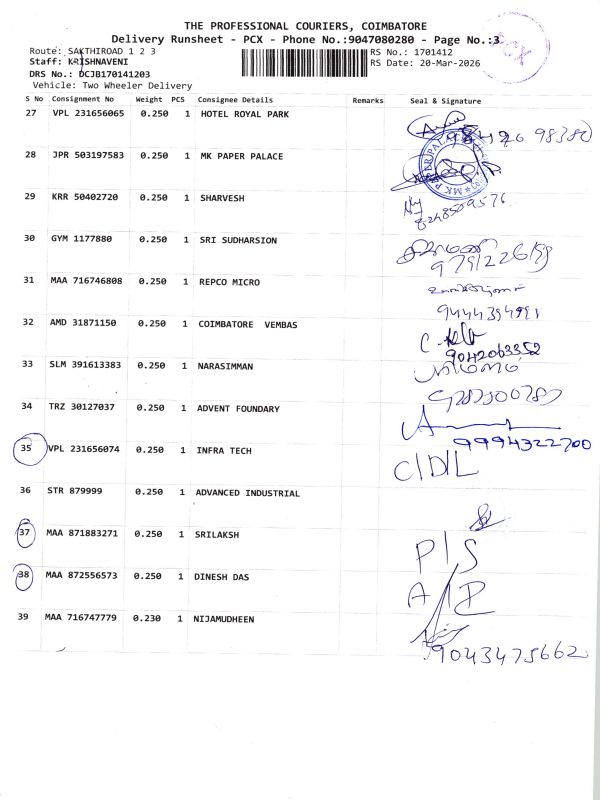 THE PROFESSIONAL COURIERS, COIMBATORE
Delivery Runsheet - PCX - Phone No.:9047080280 - Page No.:3
PCX
Route: SAKTHIROAD 1 2 3
RS No.: 1701412
Staff: KRISHNAVENI
RS Date: 20-Mar-2026
DRS No.: DCJB170141203
Vehicle: Two Wheeler Delivery
S No Consignment No Weight PCS Consignee Details Remarks Seal & Signature
27 VPL 231656065 0.250 1 HOTEL ROYAL PARK
28 JPR 503197583 0.250 1 MK PAPER PALACE
29 KRR 50402720 0.250 1 SHARVESH
8248509576
30 GYM 1177880 0.250 1 SRI SUDHARSION
31 MAA 716746808 0.250 1 REPCO MICRO
32 AMD 31871150 0.250 1 COIMBATORE VEMBAS
9042063352
33 SLM 391613383 0.250 1 NARASIMMAN
34 TRZ 30127037 0.250 1 ADVENT FOUNDARY
9994322700
35 VPL 231656074 0.250 1 INFRA TECH
C/D/L
36 STR 879999 0.250 1 ADVANCED INDUSTRIAL
37 MAA 871883271 0.250 1 SRILAKSH
P/S
38 MAA 872556573 0.250 1 DINESH DAS
39 MAA 716747779 0.230 1 NIJAMUDHEEN
9043475662